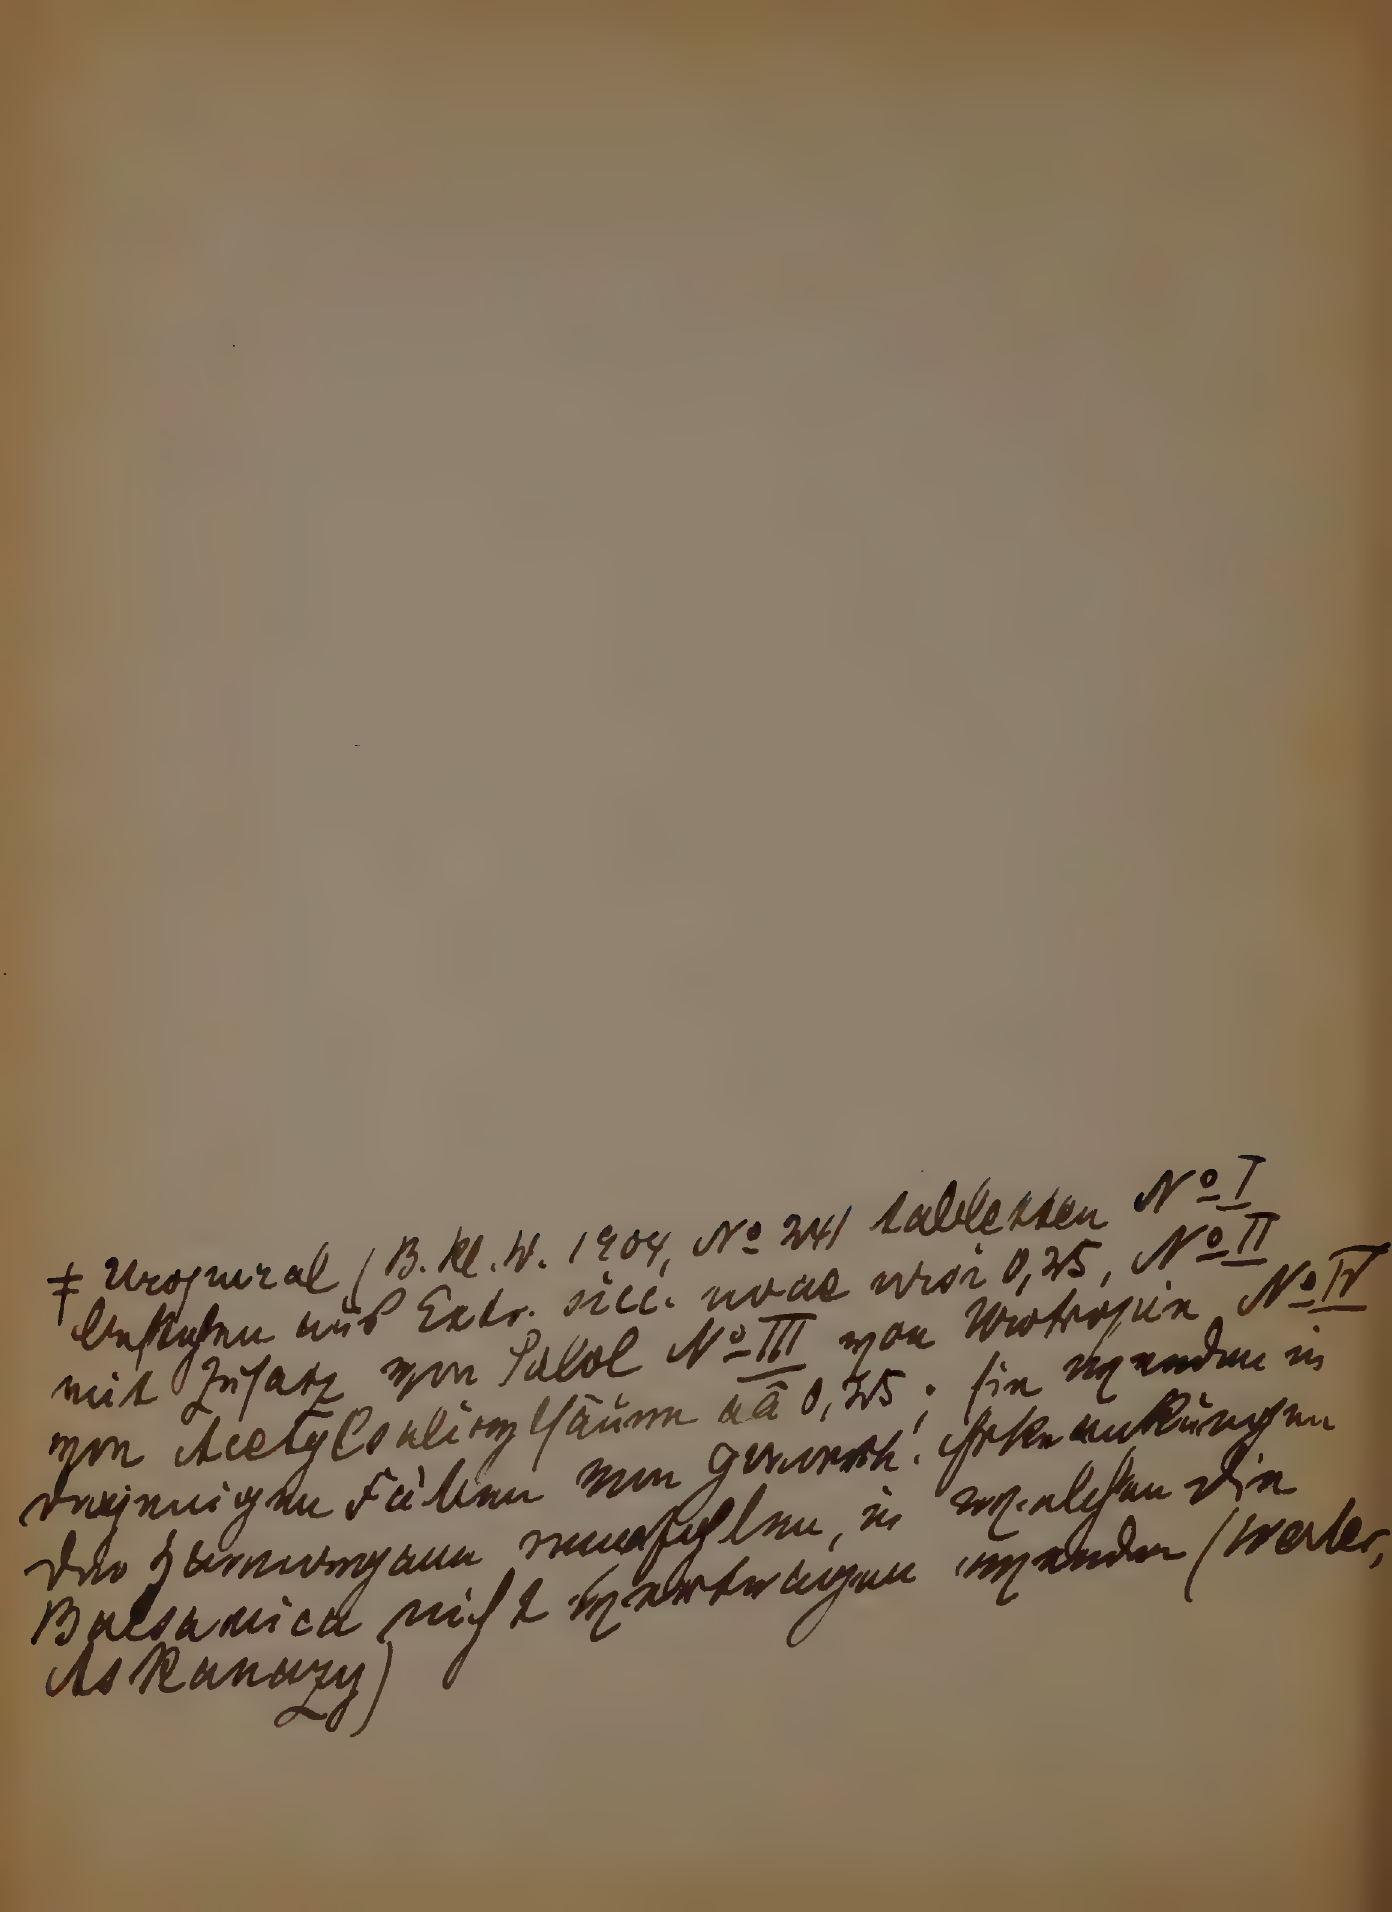 ‡ Urogural (B. kl. W. 1904, No 24) Tabletten No I
bestehen aus Extr. sicc. uvae ursi 0,25, No II
mit Zusatz von Salol No III von Urotropin No IV
von Acetylsalicylsäure aâ 0,25; sie werden in
denjenigen Fällen von gonorrh. Erkrankungen
der Harnorgane empfohlen, in welchen die
Balsamica nicht vertragen werden (Werler,
Askanazy)